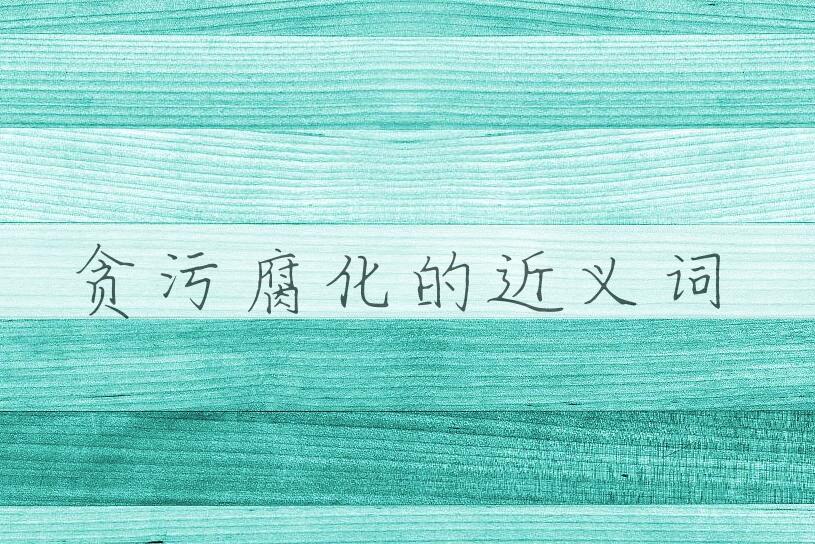 贪污腐化的近义词